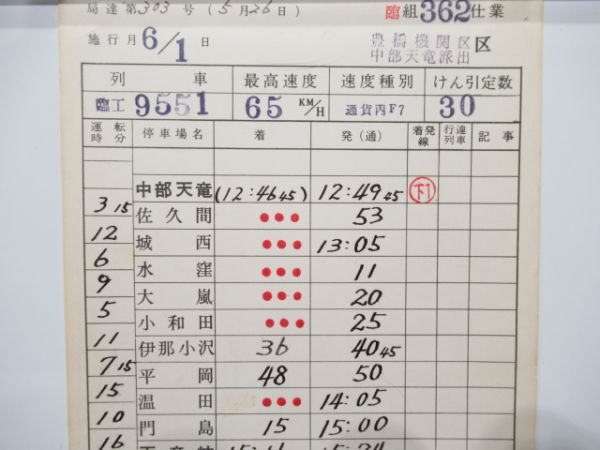 局達第303号(5月26日) 臨組362仕業
施行月6/1日 豊橋機関区 区
中部天竜派出
列車 最高速度 速度種別 けん引定数
臨工9551 65 KM/H 通貨丙F7 30
運転時分 停車場名 着 発(通) 着発線 行違列車 記事
中部天竜 (12:46 45) 12:49 45 下1
3 15
佐久間 ••• 53
12
城西 ••• 13:05
6
水窪 ••• 11
9
大嵐 ••• 20
5
小和田 ••• 25
11
伊那小沢 36 40 45
7 15
平岡 48 50
15
温田 ••• 14:05
10
門島 15 15:00
16